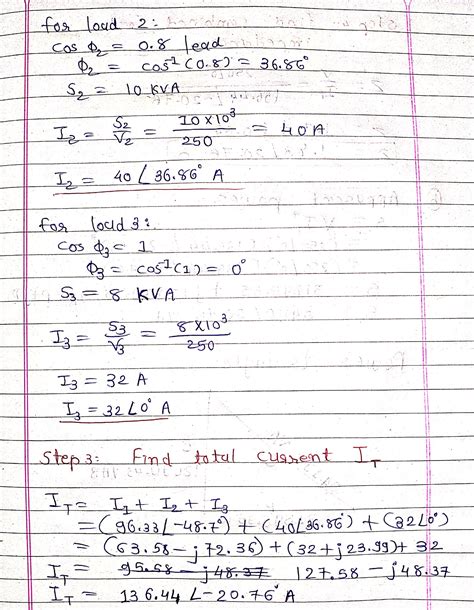 for load 2:
cos ϕ₂ = 0.8 lead
ϕ₂ = cos⁻¹(0.8) = 36.86°
S₂ = 10 KVA
I₂ = S₂/V₂ = 10×10³/250 = 40 A
I₂ = 40∠36.86° A
for load 3:
cos ϕ₃ = 1
ϕ₃ = cos⁻¹(1) = 0°
S₃ = 8 KVA
I₃ = S₃/V₃ = 8×10³/250
I₃ = 32 A
I₃ = 32∠0° A
Step 3: Find total current I_T
I_T = I₁ + I₂ + I₃
= (96.33∠-48.7°) + (40∠36.86°) + (32∠0°)
= (63.58 - j72.36) + (32 + j23.99) + 32
I_T = 95.58 - j48.37 127.58 - j48.37
I_T = 136.44∠-20.76° A